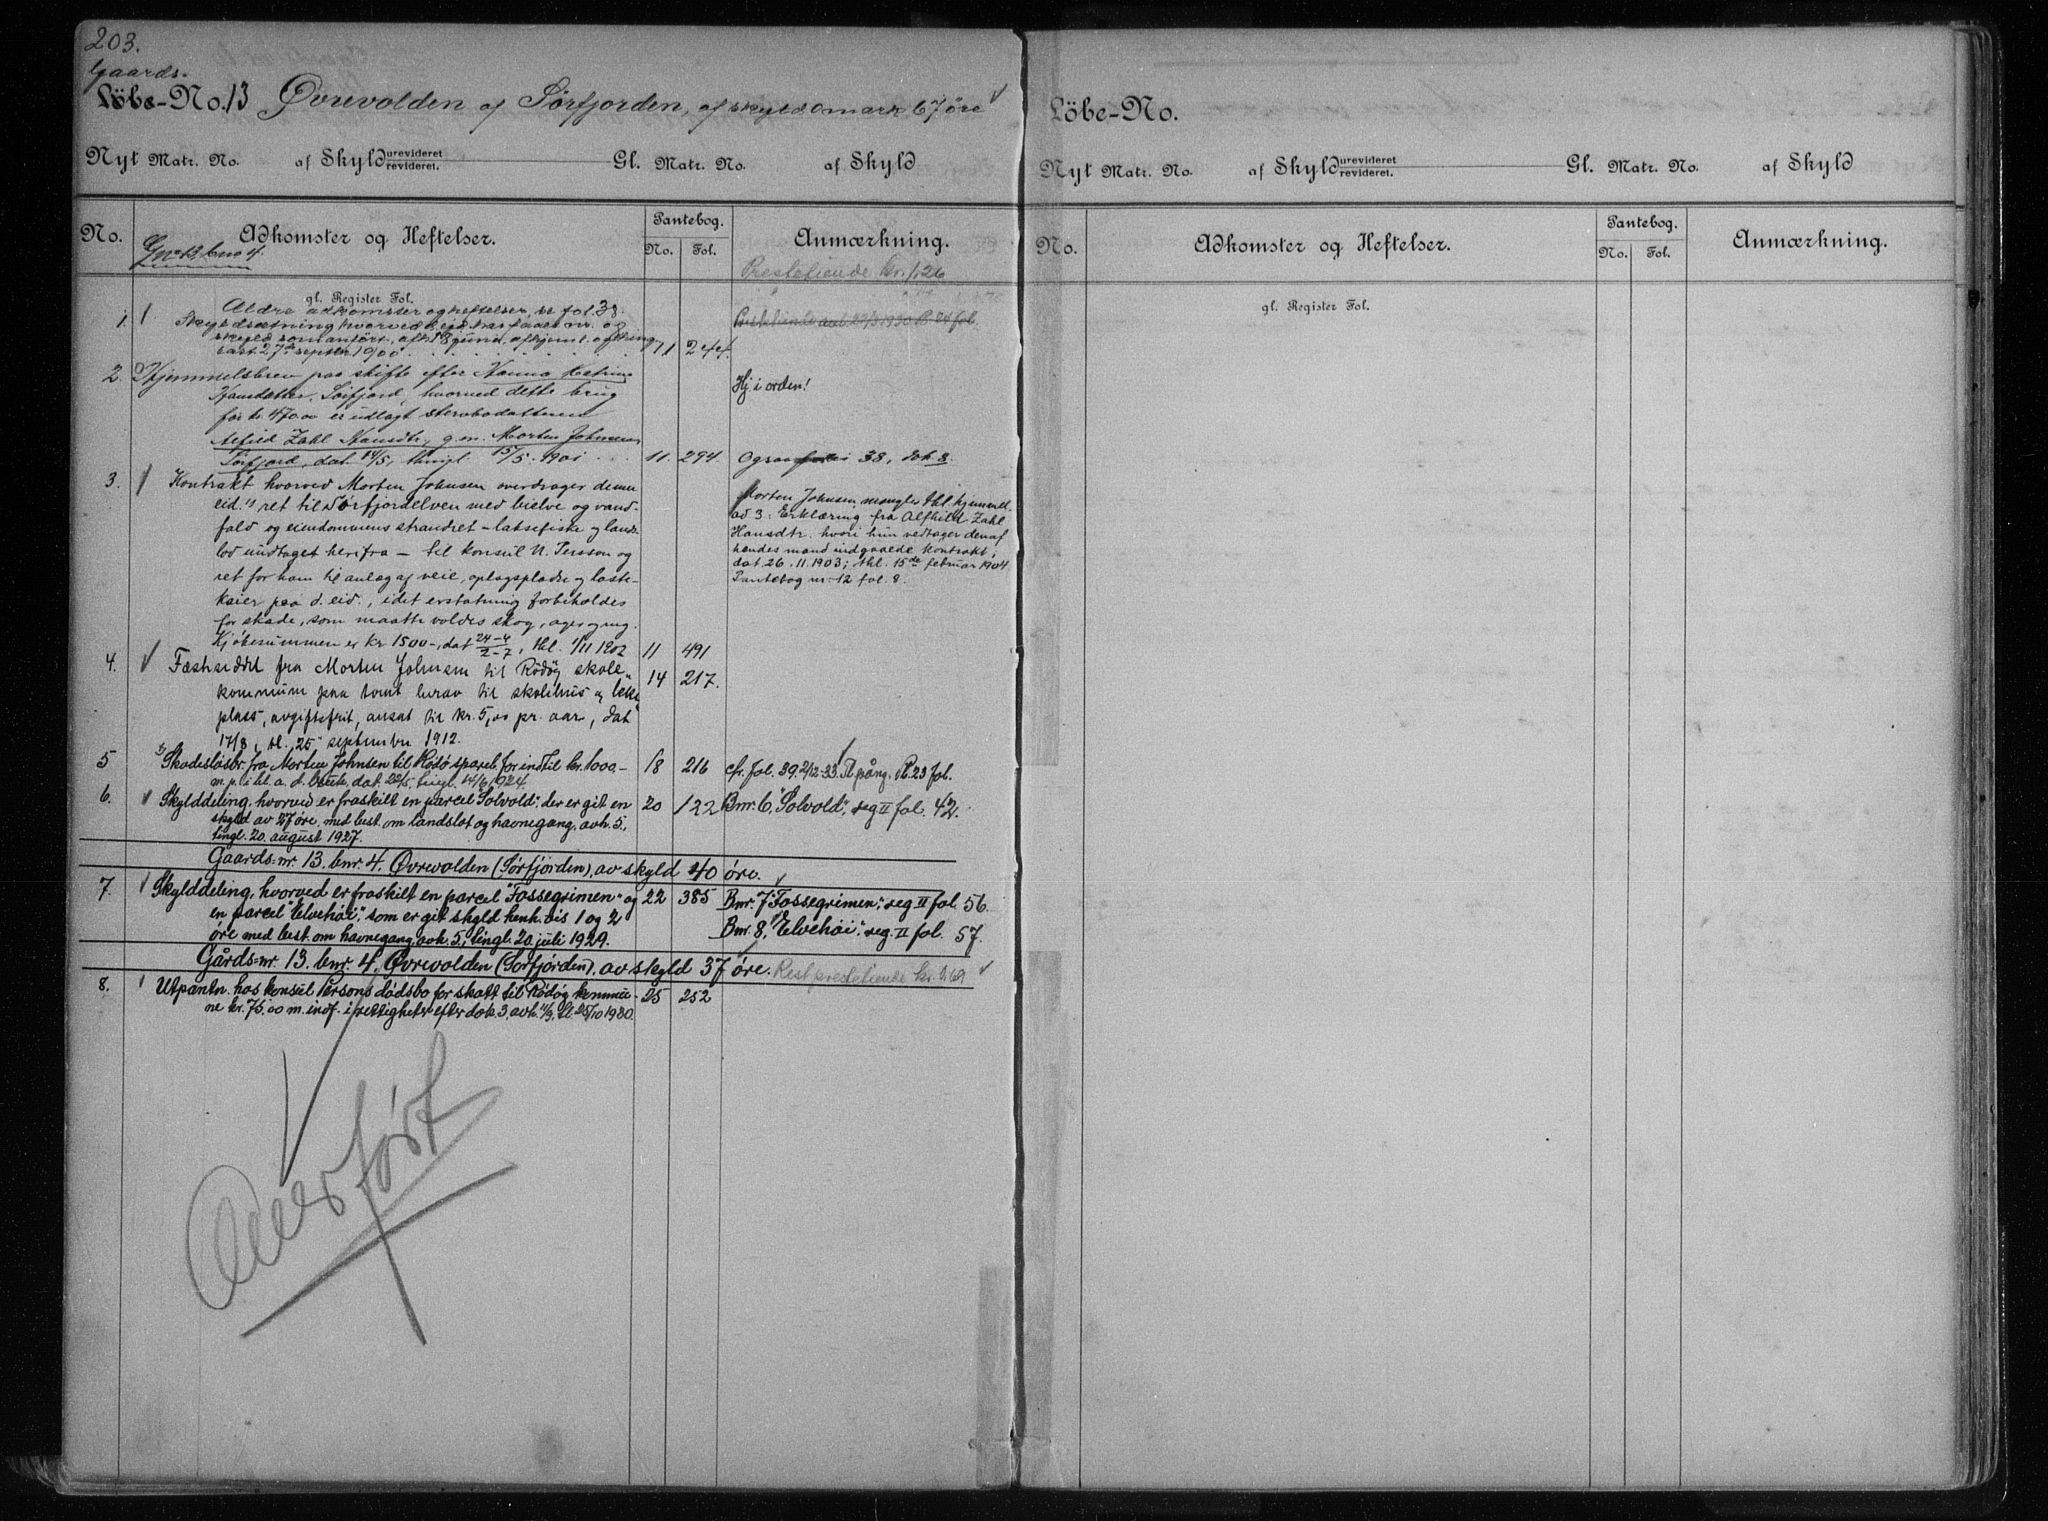 203.
Gaards-
Löbe-No. 13 Øvrevolden af Sørfjorden, af skyld 0 mark 67 öre
Nyt Matr. No. af Skyld urevideret revideret. Gl. Matr. No. af Skyld
No. Adkomster og Heftelser. Pantebog. No. Fol. Anmærkning.
Gno 13 bno 4.
Prestetiende kr. 1.26
gl. Register Fol.
Ældre adkomster og heftelser, se fol. 38.
1. Skyldsætning hvorved eid. har faaet nr. og
skyld som anført,
27de septbr. 1900 11 244.
2. Hjemmelsbrev paa skifte efter Hanna
Hansdatter, Sørfjord, hvorved dette brug Hj. i orden!
for kr. 470.00 er udlagt stervbodatteren
Zahl Hansdtr, g. m. Morten Johnsen
Sørfjord, dat. 14/5, thingl. 15/5 1901 11. 294 Ogsaa 38, dok. 8.
3. Kontrakt hvorved Morten Johnsen overdrager denne
eid.'s ret til Sørfjordelven med bielve og vand-
fald og eiendommens strandret – laksefiske og lands-
lod undtaget herfra – til konsul N. Persson og
ret for ham til anlæg af veie, oplagspladse og laste-
kaier paa d. eid., idet erstatning forbeholdes
for skade, som maatte voldes skog, ager og eng.
Kjøbesummen er kr 1500-, dat 24-4/2-7, thl. 1/11 1902 11 491
Morten Johnsen mangler thl. hjemmel.
ad 3. Erklæring fra Alfhild Zahl
Hansdtr. hvori hun vedtager den af
hendes mand indgaaede kontrakt,
dat 26.11.1903; thl. 15de februar 1904
Pantebog nr. 12 fol. 8.
4. Fæsteseddel fra Morten Johnsen til Rödöy skole- 14 217.
kommune paa tomt herav til skolehus og leke-
plass, avgiftsfrit, ansat til kr. 5,00 pr. aar, dat
17/8, tl. 25 september 1912.
5 Skadesløsbr. fra Morten Johnsen til Rödø spareb. for inntil kr. 1000,– 18 216 cfr. fol. 39.
m. p. i bl. a. d. bruk, dat. 22/5, tingl. 14/6 1924.
6. Skylddeling, hvorved er fraskilt en parcel "Solvold", der er git en 20 122 Bnr. 6, "Solvold", reg II fol. 42.
skyld av 27 øre, med best. om landslot og havnegang, avh. 5.,
tingl. 20. august 1927.
Gaards-nr. 13. bnr. 4. Øvrevolden (Sørfjorden), av skyld 40 øre.
7. Skylddeling, hvorved er fraskilt en parcel "Fossegrimen" og 22 385 Bnr. 7 "Fossegrimen", reg. II fol. 56.
en parcel "Elvehöi", som er git skyld henh.vis 1 og 2 Bnr. 8, "Elvehöi", reg. II fol. 57.
øre med best. om havnegang, avh. 5., tingl. 20. juli 1929.
Gårds-nr. 13. bnr. 4. Øvrevolden (Sørfjorden), av skyld 37 øre. Rest prestetiende kr. 0.69
8. Utpantn. hos konsul Perssons dødsbo for skatt til Rödöy kommu- 25 252
ne kr. 75.00 m. indf. i rettigheter efter dok. 3, avh. 4/9, tl. 25/10 1930.
Overført
Löbe-No.
Nyt Matr. No. af Skyld urevideret revideret. Gl. Matr. No. af Skyld
No. Adkomster og Heftelser. Pantebog. No. Fol. Anmærkning.
gl. Register Fol.